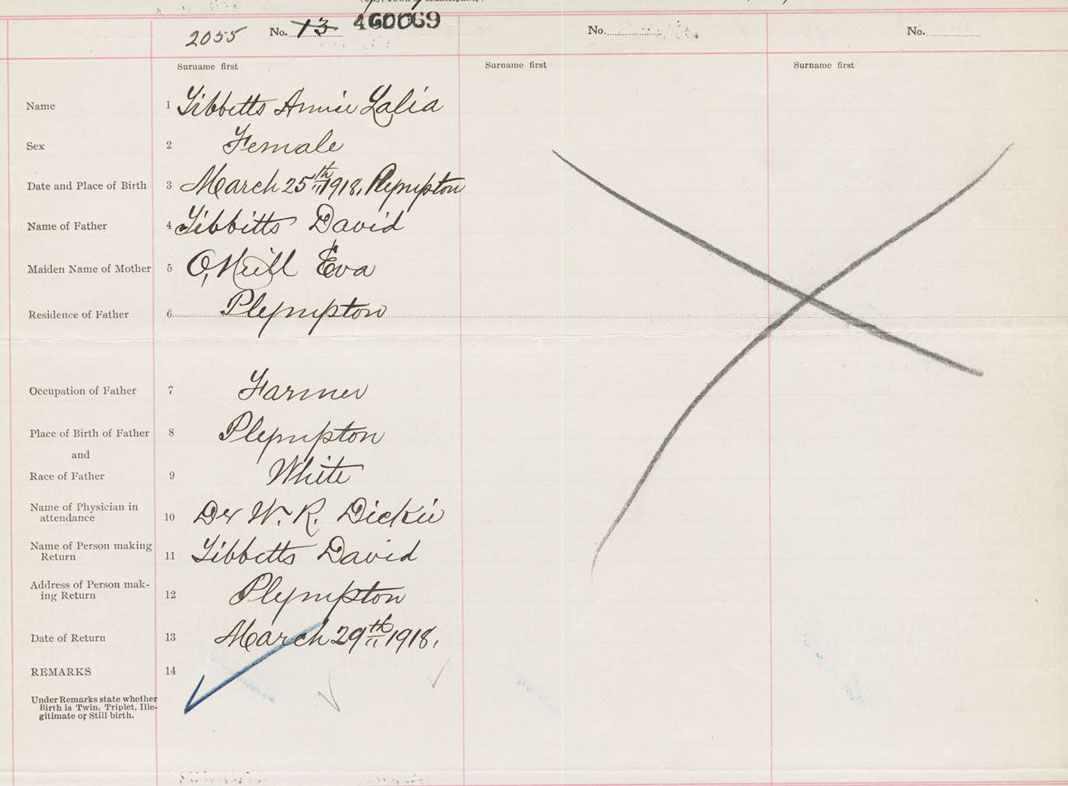 2055 No. 13 460069 No. No.
Surname first Surname first Surname first
Name 1 Tibbetts Annie Lalia
Sex 2 Female
Date and Place of Birth 3 March 25th 1918, Plympton
Name of Father 4 Tibbitts David
Maiden Name of Mother 5 O,Neill Eva
Residence of Father 6 Plympton
Occupation of Father 7 Farmer
Place of Birth of Father 8 Plympton
and
Race of Father 9 White
Name of Physician in
attendance 10 Dr W. R. Dickie
Name of Person making
Return 11 Tibbetts David
Address of Person mak-
ing Return 12 Plympton
Date of Return 13 March 29th 1918,
REMARKS 14
Under Remarks state whether
Birth is Twin, Triplet, Ille-
gitimate or Still birth.